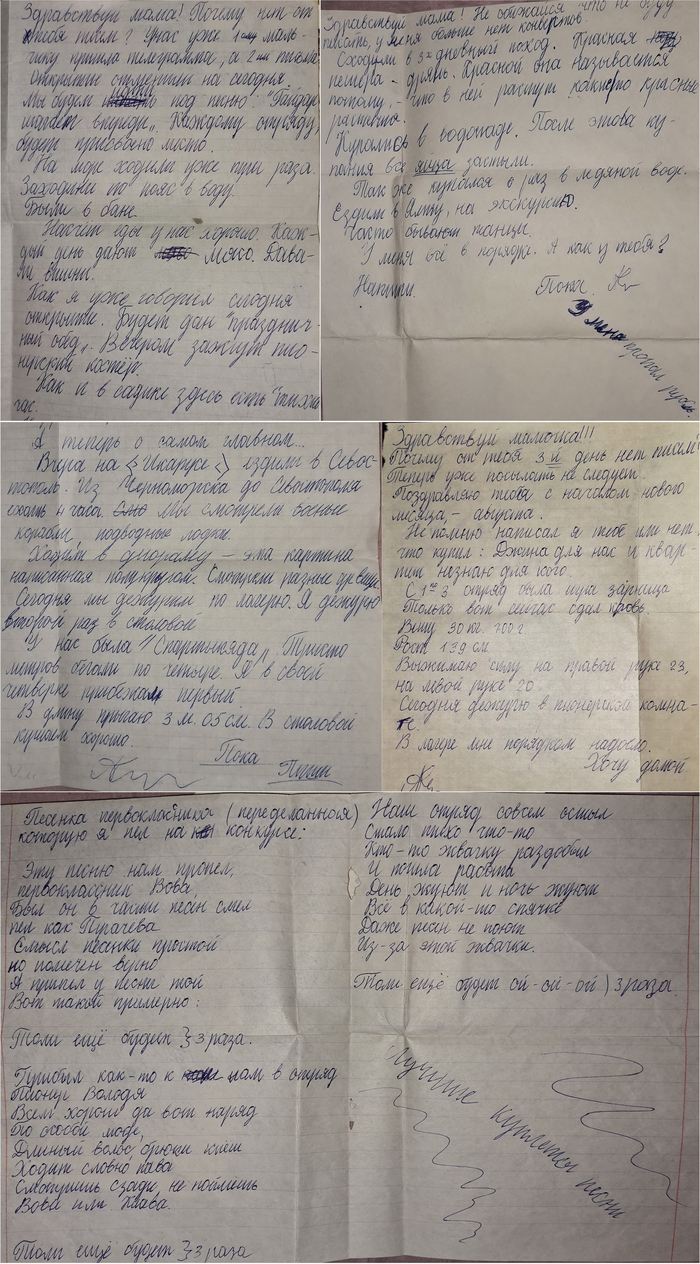 Здравствуй мама! Почему нет от
тебя писем? У нас уже 1му маль-
чику пришла телеграмма, а 2ум письма
Открытие отметили на сегодня.
Мы будем идти под песню: "Гайдар
шагает впереди". Каждому отряду,
будет присвоено место.
На море ходили уже три раза.
Заходили по пояс в воду.
Были в бане.
Насчет еды у нас хорошо. Каж-
дый день дают мясо. Дава-
ли вишни.
Как я уже говорил сегодня
открытие. Будет дан "празднич-
ный обед". Вечером зажгут пио-
нерский костёр.
Как и в садике здесь есть "тихий
час.
Здравствуй мама! Не обижайся что не буду
писать, у меня больше нет конвертов.
Сходили в 3х дневный поход. Красная
пещера - дрянь. Красной она называется
потому, - что в ней растут какието красные
растения.
Купались в водопаде. После этова ку-
пания все яица застыли.
Так же купался 6 раз в ледяной воде.
Ездили в Ялту, на экскурсию.
Часто бывают танцы.
У меня всё в порядке. А как у тебя?
Напиши. Пока.
У меня пропал рубль.
А теперь о самом главном...
Вчера на <Икарусе> ездили в Севас-
тополь. Из Черноморска до Севастополя
ехать 4 часа. Мы смотрели военые
корабли, подводные лодки.
Ходили в диораму - эта картина
написанная полукругом. Смотрели разные др. вещи.
Сегодня мы дежурим по лагерю. Я дежурю
второй раз в столовой
У нас была "Спартакяда". Тристо
метров бегали по четыре. Я в своей
четверке прибежал первый
В длину прыгаю 3 м. 05 см. В столовой
кушаем хорошо.
Пока
Пиши
Здравствуй мамочка!!!
Почему от тебя 3й день нет писем?
Теперь уже посылать не следует.
Поздравляю тебя с началом нового
месяца, - августа.
Не помню написал я тебе или нет.
что купил: Джина для нас и квар-
тет незнаю для кого.
С 1ог 3 отряд была игра зарница
Только вот сейчас сдал кровь.
Вешу 30 кг. 700 г
Рост 139 см.
Выжимаю силу на правой руке 23,
на левой руке 20
Сегодня дежурю в пионерской комна-
те.
В лагере мне порядком надоело.
Хочу домой
Песенка первоклашника (переделанноя)
которую я пел на конкурсе:
Эту песню нам пропел,
первоклассник Вова,
Был он в части песен смел
пел как Пугачёва
Смысл песенки простой
но помечен верно
А припев у песни той
Вот такой примерно:
Толи ещё будет } 3 раза.
Прибыл как-то к нам в отряд
Пионер Володя
Всем хорош да вот наряд
По особой моде,
Длиный волос, брюки клёш
Ходит словно пава
Смотришь сзади, не поймёшь
Вова или Клава.
Толи ещё будет } 3 раза
Наш отряд совсем остыл
Стало тихо что-то
Кто-то жвачку раздобыл
И пошла работа
День жуют и ночь жуют
Всё в какой-то спячке
Даже песен не поют
Из-за этой жвачки.
Толи ещё будет ой-ой-ой) 3 раза.
Лучшие куплеты песни